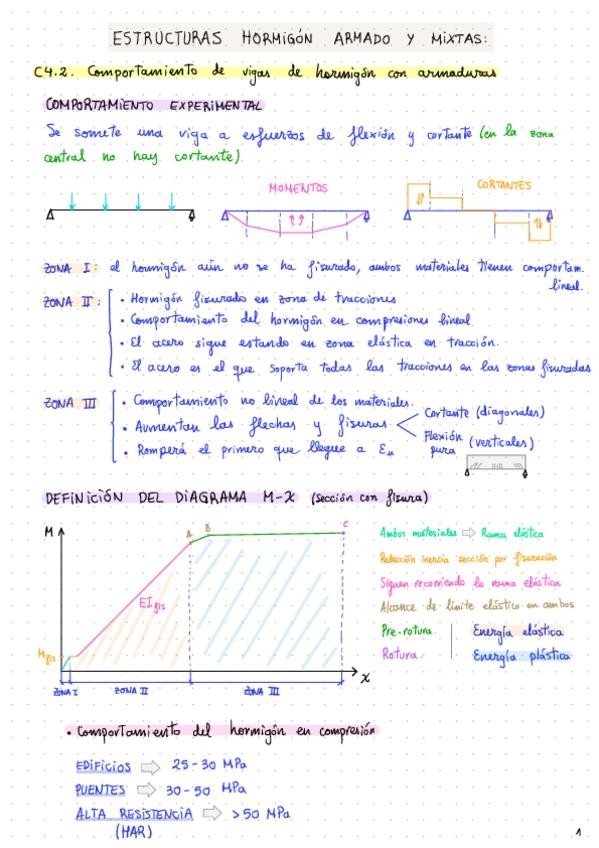 ESTRUCTURAS HORMIGÓN ARMADO Y MIXTAS:
C4.2. Comportamiento de vigas de hormigón con armaduras
COMPORTAMIENTO EXPERIMENTAL
Se somete una viga a esfuerzos de flexión y cortante (en la zona
central no hay cortante)
MOMENTOS
CORTANTES
ZONA I: el hormigón aún no se ha fisurado, ambos materiales tienen comportam.
lineal.
ZONA II:
• Hormigón fisurado en zona de tracciones
• Comportamiento del hormigón en compresiones lineal
• El acero sigue estando en zona elástica en tracción.
• El acero es el que soporta todas las tracciones en las zonas fisuradas
ZONA III
• Comportamiento no lineal de los materiales.
• Aumentan las flechas y fisuras
Cortante (diagonales)
Flexión pura (verticales)
• Romperá el primero que llegue a εu
DEFINICIÓN DEL DIAGRAMA M-χ (sección con fisura)
M
A
B
C
EIfis
Mfis
χ
ZONA I
ZONA II
ZONA III
Ambos materiales ⇨ Rama elástica
Reducción inercia sección por fisuración
Siguen recorriendo la rama elástica
Alcance de límite elástico en ambos
Pre-rotura
Energía elástica
Rotura
Energía plástica
• Comportamiento del hormigón en compresión
EDIFICIOS ⇨ 25-30 MPa
PUENTES ⇨ 30-50 MPa
ALTA RESISTENCIA ⇨ >50 MPa
(HAR)
1